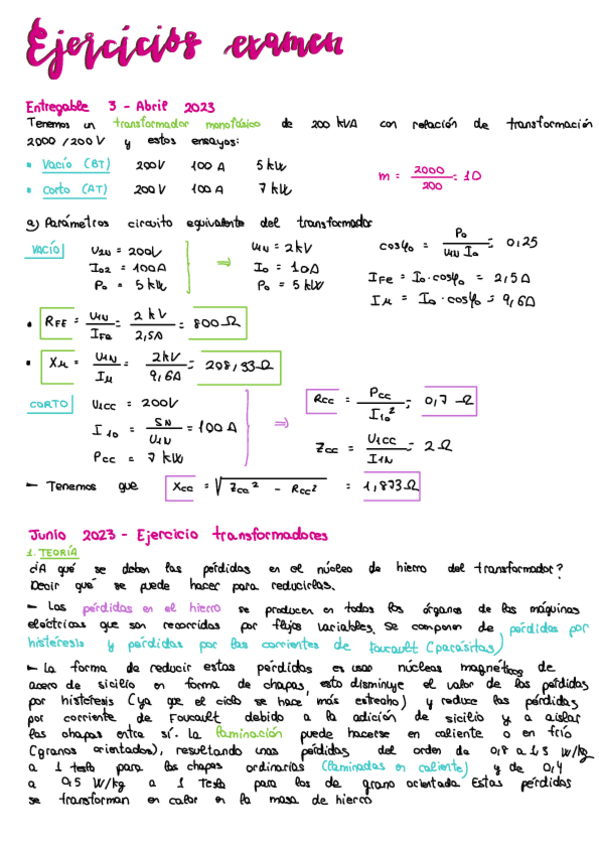 Ejercicios examen
Entregable 3 - Abril 2023
Tenemos un transformador monofásico de 200 kVA con relación de transformación
2000 / 200 V y estos ensayos:
• Vacío (BT) 200V 100 A 5 kW
• Corto (AT) 200 V 100 A 7 kW
m = 2000 / 200 = 10
a) Parámetros circuito equivalente del transformador
VACÍO
U2N = 200V
I02 = 100A
P0 = 5 kW
⇒
U1N = 2kV
I0 = 10A
P0 = 5 kW
cosφ0 = P0 / U1N I0 = 0,25
IFe = I0 · cosφ0 = 2,5A
Iμ = I0 · cosφ0 = 9,6A
• RFE = U1N / IFe = 2 kV / 2,5A = 800 Ω
• Xμ = U1N / Iμ = 2kV / 9,6A = 208,33 Ω
CORTO
U1cc = 200V
I10 = SN / U1N = 100 A
Pcc = 7 kW
⇒
Rcc = Pcc / I10² = 0,7 Ω
Zcc = U1cc / I1N = 2 Ω
- Tenemos que Xcc = √ Zcc² - Rcc² = 1,873 Ω
Junio 2023 - Ejercicio transformadores
1. TEORÍA
¿A qué se deben las pérdidas en el núcleo de hierro del transformador?
Decir qué se puede hacer para reducirlas.
- Las pérdidas en el hierro se producen en todos los órganos de las máquinas
eléctricas que son recorridas por flujos variables. Se componen de pérdidas por
histéresis y pérdidas por las corrientes de Foucault (parásitas)
- La forma de reducir estas pérdidas es usar núcleos magnéticos de
acero de silicio en forma de chapas, esto disminuye el valor de las pérdidas
por histéresis (ya que el ciclo se hace más estrecho) y reduce las pérdidas
por corriente de Foucault debido a la adición de silicio y a aislar
las chapas entre sí. La laminación puede hacerse en caliente o en frío
(granos orientados), resultando unas pérdidas del orden de 0,8 a 1,3 W/kg
a 1 tesla para las chapas ordinarias (laminadas en caliente) y de 0,4
a 0,5 W/kg a 1 Tesla para las de grano orientada. Estas pérdidas
se transforman en calor en la masa de hierro